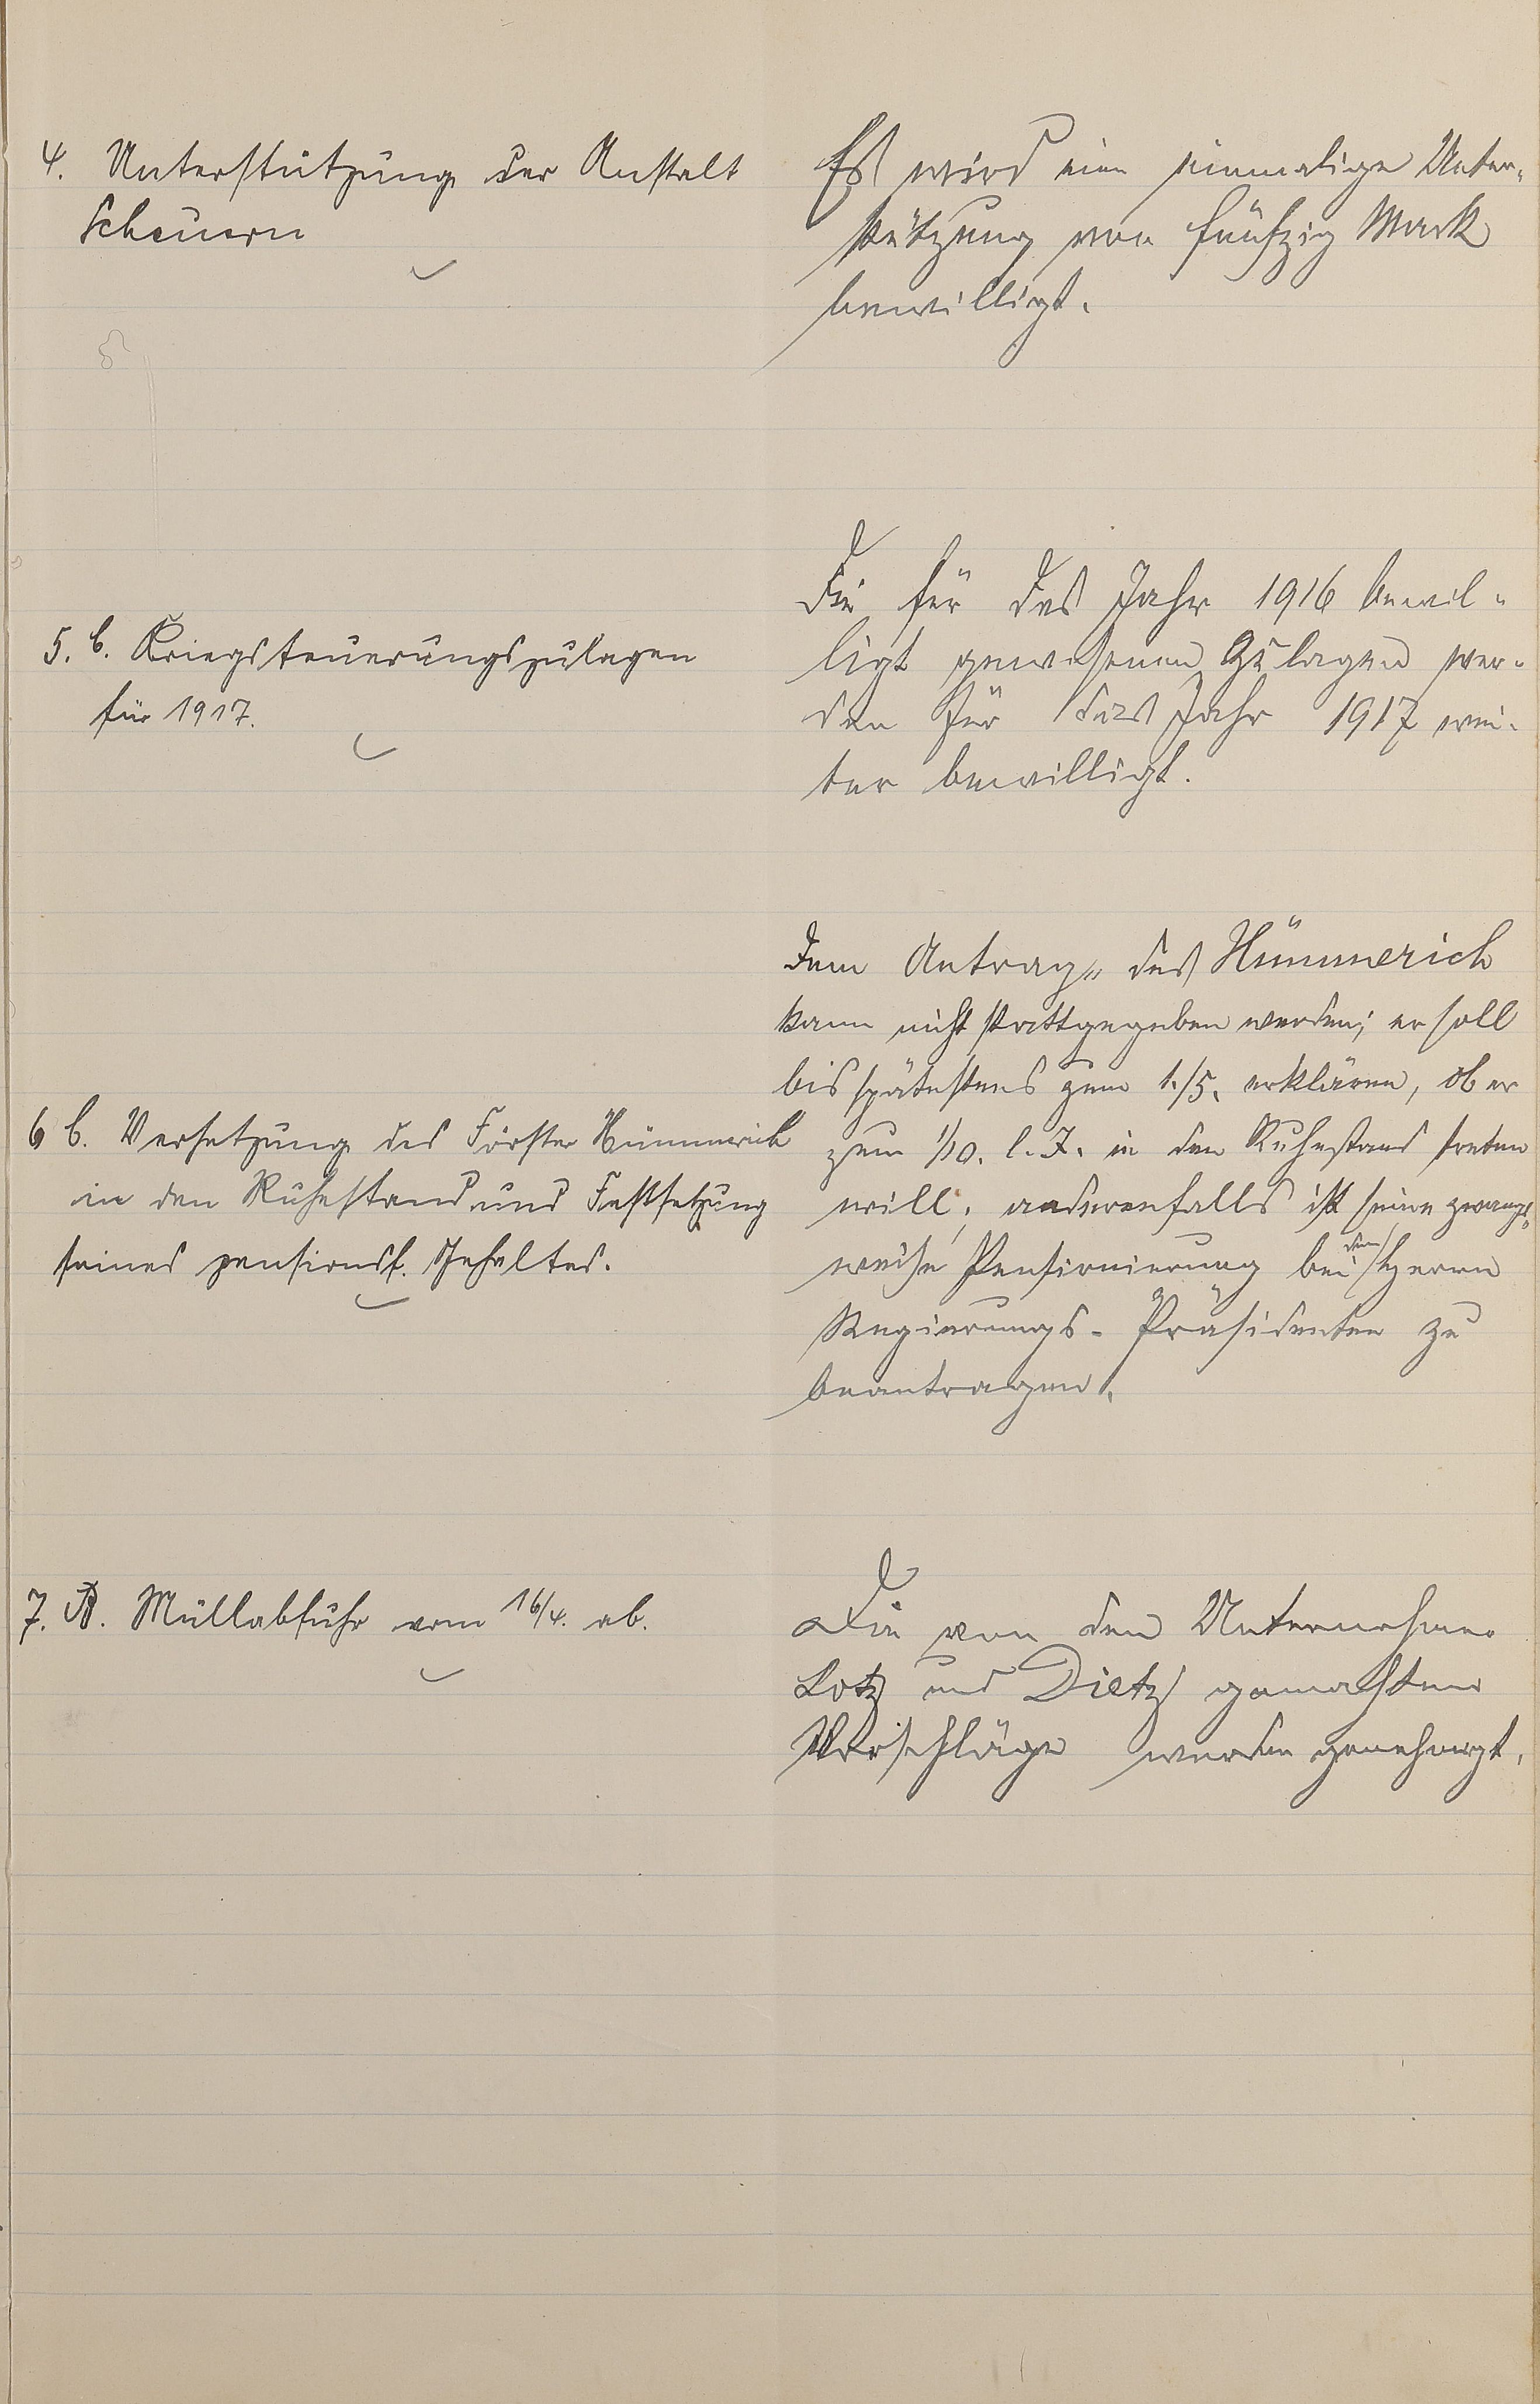 4. Unterstützung der Anstalt
Scheuern
Es wird eine einmalige Unter-
stützung von fünfzig Mark
bewilligt.
5. b. Kriegsteuerungszulagen
für 1917.
Die für das Jahr 1916 bewil-
ligt gewesenen Zulagen wer-
den für das Jahr 1917 wei-
ter bewilligt.
6 b. Versetzung des Förster Hümmerich
in den Ruhestand und Festsetzung
seines pensionsf. Gehaltes.
Dem Antrag des Hümmerich
kann nicht stattgegeben werden; er soll
bis spätestens zum 1./5. erklären, ob er
zum 1/10. l. J. in den Ruhestand treten
will; anderenfalls ist seine zwangs-
weise Pensionierung bei dem Herrn
Regierungs-Präsidenten zu
beantragen.
7. B. Müllabfuhr vom 16/4. ab.
Die von den Unternehmer
Lotz und Dietz gemachten
Vorschläge werden genehmigt.